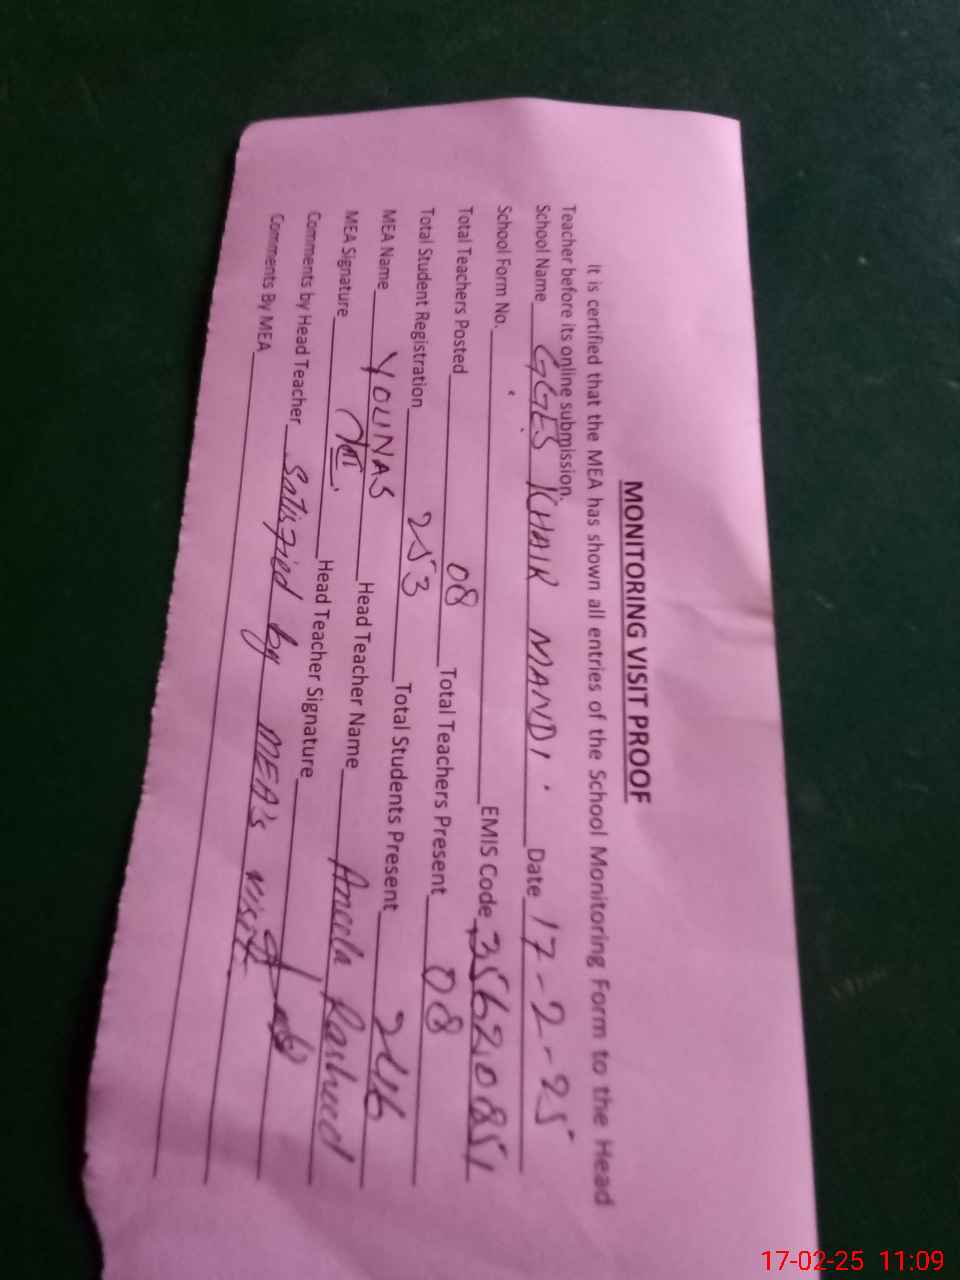 MONITORING VISIT PROOF
It is certified that the MEA has shown all entries of the School Monitoring Form to the Head
Teacher before its online submission.
School Name GGES KHAIR MANDI. Date 17-2-25
School Form No. EMIS Code 35620851
Total Teachers Posted 08 Total Teachers Present 08
Total Student Registration 253 Total Students Present 246
MEA Name YOUNAS Head Teacher Name Aneela Rasheed
MEA Signature Head Teacher Signature
Comments by Head Teacher Satisfied by MEA's visit
Comments By MEA
17-02-25 11:09